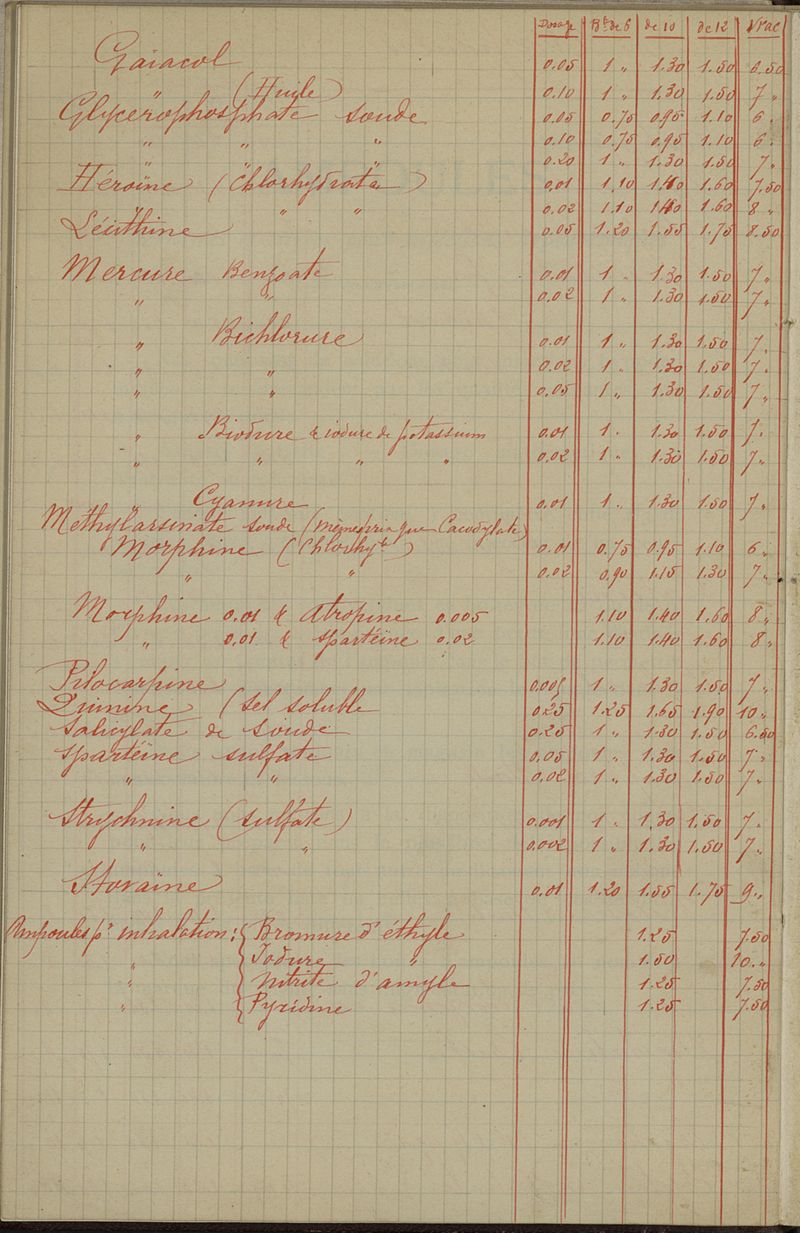 Dosage Bte de 6 de 10 de 12 Vrac
Gaïacol 0.05 1 " 1.30 1.50 6.50
" (Huile) 0.10 1 " 1.30 1.50 7 "
Glycérophosphate soude 0.05 0.75 0.95 1.10 6 "
" " " 0.10 0.75 0.95 1.10 6 "
" " " 0.20 1 " 1.30 1.50 7 "
Héroïne (Chlorhydrate) 0.01 1.10 1.40 1.60 7.50
" " " 0.02 1.10 1.40 1.60 8 "
Lécithine 0.05 1.20 1.55 1.75 8.50
Mercure Benzoate 0.01 1 " 1.30 1.50 7 "
" " 0.02 1 " 1.30 1.50 7 "
" Bichlorure 0.01 1 " 1.30 1.50 7 "
" " 0.02 1 " 1.30 1.50 7 "
" " 0.05 1 " 1.30 1.50 7 "
" Biodure & iodure de potassium 0.01 1 " 1.30 1.50 7 "
" " " " 0.02 1 " 1.30 1.50 7 "
Cyanure 0.01 1 " 1.30 1.50 7 "
Methylarsinate soude (même prix que Cacodylate)
Morphine (Chlorhyte) 0.01 0.75 0.95 1.10 6 "
" " 0.02 0.90 1.15 1.30 7 "
Morphine 0.01 & Atropine 0.005 1.10 1.40 1.60 8 "
" 0.01 & Spartéine 0.02 1.10 1.40 1.60 8 "
Pilocarpine 0.005 1 " 1.30 1.50 7 "
Quinine (sel soluble 0.25 1.25 1.65 1.90 10 "
Salicylate de soude 0.25 1 " 1.30 1.50 6.50
Spartéine sulfate 0.05 1 " 1.30 1.50 7 "
" " 0.02 1 " 1.30 1.50 7 "
Strychnine (sulfate) 0.001 1 " 1.30 1.50 7 "
" " 0.002 1 " 1.30 1.50 7 "
Stovaïne 0.01 1.20 1.55 1.75 9 "
Ampoules pr inhalation: Bromure d'éthyle 1.25 7.50
" Iodure " 1.50 10 "
" Nitrite d'amyle 1.25 7.50
" Pyridine 1.25 7.50